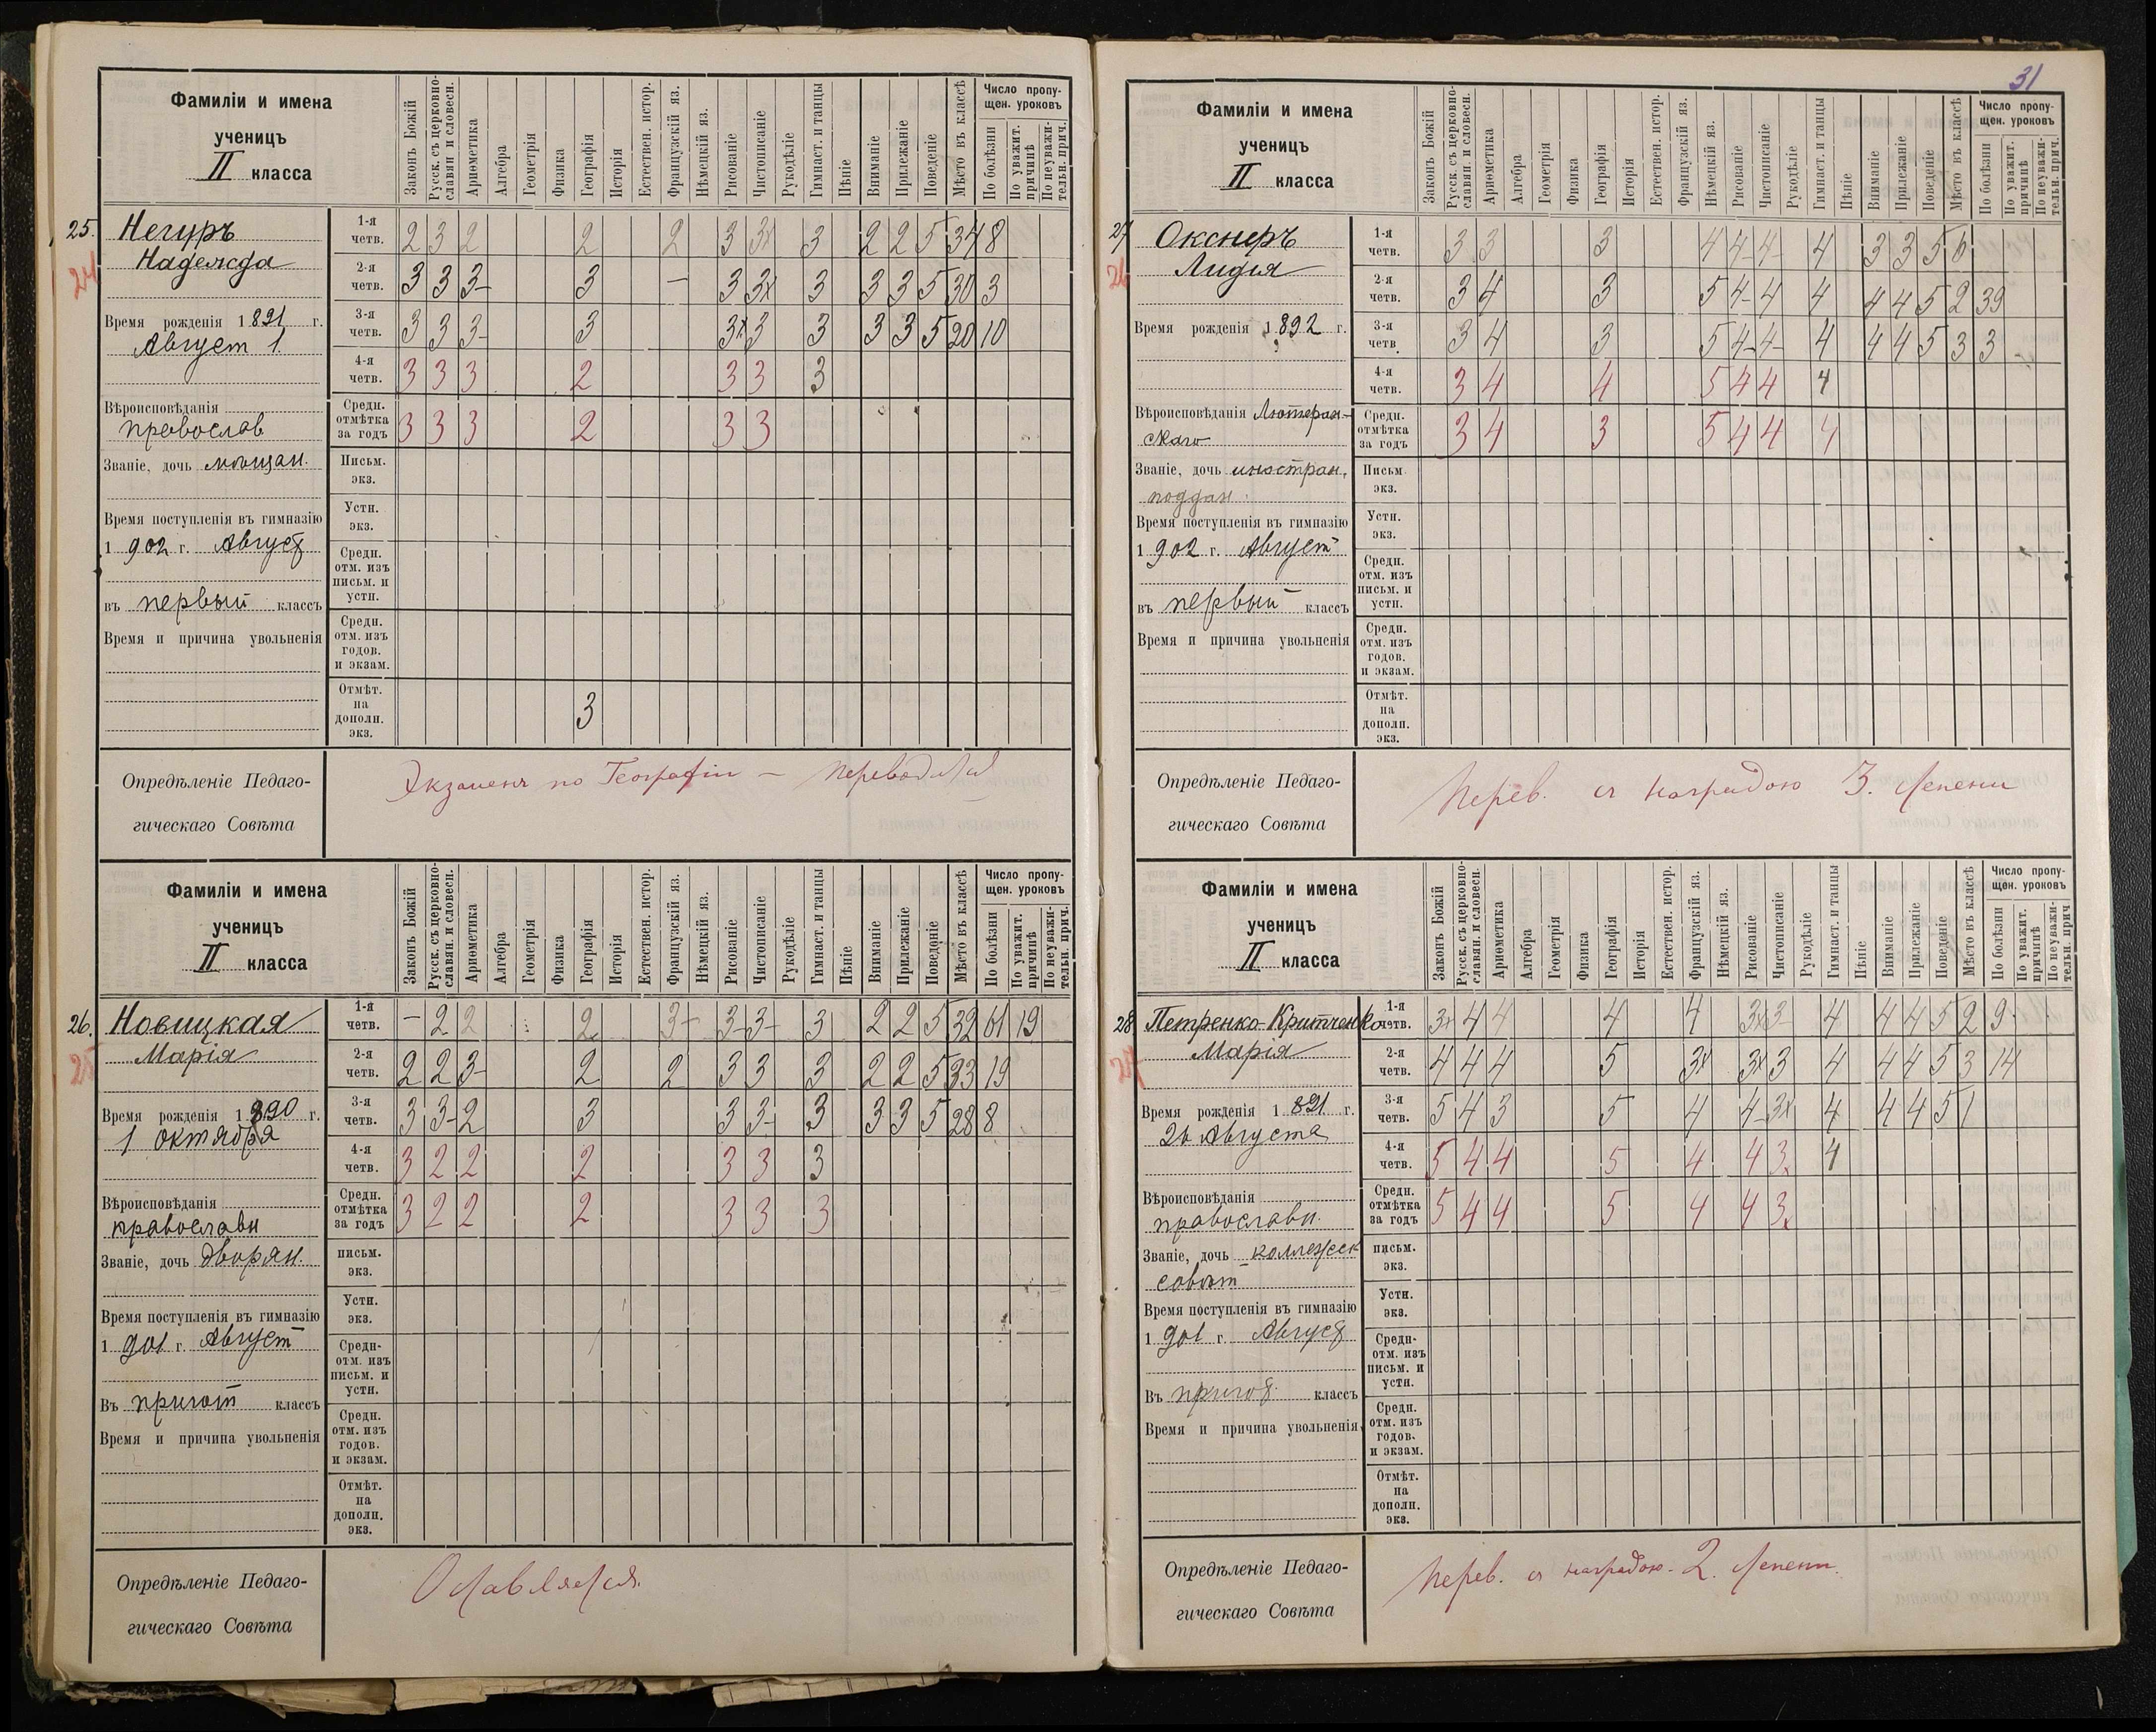 31
Фамиліи и имена
ученицъ
II класса
Законъ Божій
Русск. съ церковно-
славян. и словесн.
Ариѳметика
Алгебра
Геометрія
Физика
Географія
Исторія
Естествен. истор.
Французскій яз.
Нѣмецкій яз.
Рисованіе
Чистописаніе
Рукодѣліе
Гимнаст. и танцы
Пѣніе
Вниманіе
Прилежаніе
Поведеніе
Мѣсто въ классѣ
Число пропу-
щен. уроковъ
По болѣзни
По уважит.
причинѣ
По неуважи-
тельн. прич.
25. Негуръ
24 Надежда
Время рожденія 1891 г.
Август 1
Вѣроисповѣданія
православ
Званіе, дочь мѣщан.
Время поступленія въ гимназію
1902 г. Август
въ первый классъ
Время и причина увольненія
1-я четв. 2 3 2 2 2 3 3х 3 2 2 5 34 8
2-я четв. 3 3 3- 3 — 3 3х 3 3 3 5 30 3
3-я четв. 3 3 3- 3 3х 3 3 3 3 5 20 10
4-я четв. 3 3 3 2 3 3 3
Средн. отмѣтка за годъ 3 3 3 2 3 3
Письм. экз.
Устн. экз.
Средн. отм. изъ письм. и устн.
Средн. отм. изъ годов. и экзам.
Отмѣт. на дополн. экз. 3
Опредѣленіе Педаго-
гическаго Совѣта
Экзаменъ по Географіи — переводится
Фамиліи и имена
ученицъ
II класса
Законъ Божій
Русск. съ церковно-
славян. и словесн.
Ариѳметика
Алгебра
Геометрія
Физика
Географія
Исторія
Естествен. истор.
Французскій яз.
Нѣмецкій яз.
Рисованіе
Чистописаніе
Рукодѣліе
Гимнаст. и танцы
Пѣніе
Вниманіе
Прилежаніе
Поведеніе
Мѣсто въ классѣ
Число пропу-
щен. уроковъ
По болѣзни
По уважит.
причинѣ
По неуважи-
тельн. прич.
26. Новицкая
25 Марія
Время рожденія 1890 г.
1 октября
Вѣроисповѣданія
православн
Званіе, дочь дворян.
Время поступленія въ гимназію
1901 г. Август
Въ пригот классъ
Время и причина увольненія
1-я четв. — 2 2 2 3- 3- 3- 3 2 2 5 32 61 19
2-я четв. 2 2 3- 2 2 3 3 3 2 2 5 33 19
3-я четв. 3 3- 2 3 3 3- 3 3 3 5 28 8
4-я четв. 3 2 2 2 3 3 3
Средн. отмѣтка за годъ 3 2 2 2 3 3 3
письм. экз.
Устн. экз.
Средн- отм. изъ письм. и устн.
Средн. отм. изъ годов. и экзам.
Отмѣт. на дополн. экз.
Опредѣленіе Педаго-
гическаго Совѣта
Оставляется.
Фамиліи и имена
ученицъ
II класса
Законъ Божій
Русск. съ церковно-
славян. и словесн.
Ариѳметика
Алгебра
Геометрія
Физика
Географія
Исторія
Естествен. истор.
Французскій яз.
Нѣмецкій яз.
Рисованіе
Чистописаніе
Рукодѣліе
Гимнаст. и танцы
Пѣніе
Вниманіе
Прилежаніе
Поведеніе
Мѣсто въ классѣ
Число пропу-
щен. уроковъ
По болѣзни
По уважит.
причинѣ
По неуважи-
тельн. прич.
27 Окснеръ
26 Лидия
Время рожденія 1892 г.
Вѣроисповѣданія Лютеран-
скаго
Званіе, дочь иностран.
поддан.
Время поступленія въ гимназію
1902 г. Август
въ первый классъ
Время и причина увольненія
1-я четв. 3 3 3 4 4- 4- 4 3 3 5 6
2-я четв. 3 4 3 5 4- 4 4 4 4 5 2 39
3-я четв. 3 4 3 5 4- 4- 4 4 4 5 3 3
4-я четв. 3 4 4 5 4 4 4
Средн. отмѣтка за годъ 3 4 3 5 4 4 4
Письм. экз.
Устн. экз.
Средн. отм. изъ письм. и устн.
Средн. отм. изъ годов. и экзам.
Отмѣт. на дополн. экз.
Опредѣленіе Педаго-
гическаго Совѣта
Перев. съ наградою 3. степени
Фамиліи и имена
ученицъ
II класса
Законъ Божій
Русск. съ церковно-
славян. и словесн.
Ариѳметика
Алгебра
Геометрія
Физика
Географія
Исторія
Естествен. истор.
Французскій яз.
Нѣмецкій яз.
Рисованіе
Чистописаніе
Рукодѣліе
Гимнаст. и танцы
Пѣніе
Вниманіе
Прилежаніе
Поведеніе
Мѣсто въ классѣ
Число пропу-
щен. уроковъ
По болѣзни
По уважит.
причинѣ
По неуважи-
тельн. прич
28 Петренко-Критченко
27 Марія
Время рожденія 1891 г.
26 Августа
Вѣроисповѣданія
православн.
Званіе, дочь коллежск
совѣт
Время поступленія въ гимназію
1901 г. Август
Въ пригот. классъ
Время и причина увольненія
1-я четв. 3х 4 4 4 4 3х 3- 4 4 4 5 2 9
2-я четв. 4 4 4 5 3х 3х 3 4 4 4 5 3 14
3-я четв. 5 4 3 5 4 4- 3х 4 4 4 5 1
4-я четв. 5 4 4 5 4 4 3х 4
Средн. отмѣтка за годъ 5 4 4 5 4 4 3х
письм. экз.
Устн. экз.
Средн- отм. изъ письм. и устн.
Средн. отм. изъ годов. и экзам.
Отмѣт. на дополн. экз.
Опредѣленіе Педаго-
гическаго Совѣта
Перев. съ наградою 2. степени.